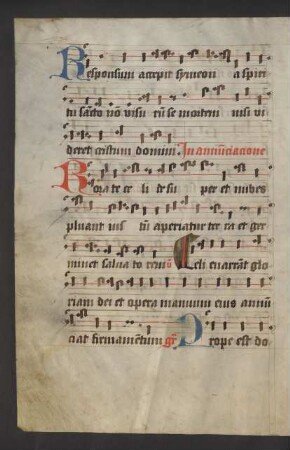 Responsum accepit symeon a spiri
tu sancto nō visu rū se mortem nisi vi
deret cristum domini In annunciacione
Rora te ce li de su per et nubes
pluant ius tū aperiatur ter ra et ger
minet salua to rem Celi enarrāt glo
riam dei et opera manuum eius annū
ciat firmamentum gr̄ Prope est do